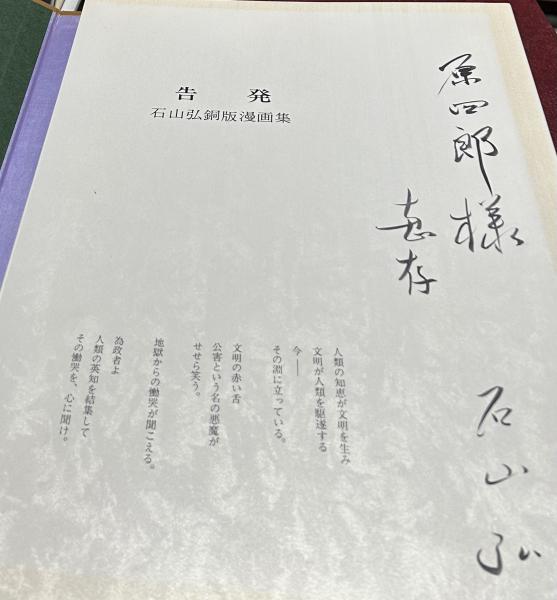 原四郎様
恵存
石山弘
告発
石山弘銅版漫画集
人類の知恵が文明を生み
文明が人類を駆逐する
今――
その淵に立っている。
文明の赤い舌
公害という名の悪魔が
せせら笑う。
地獄からの慟哭が聞こえる。
為政者よ
人類の英知を結集して
その慟哭を、心に聞け。